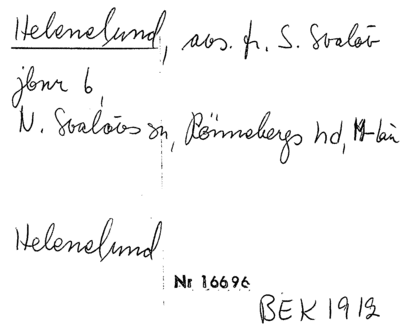 Helenelund, avs. fr. S. Svalöv
jbnr 6,
N. Svalövs sn, Rönnebergs hd, M-län
Helenelund
Nr 16696
BEK 1912